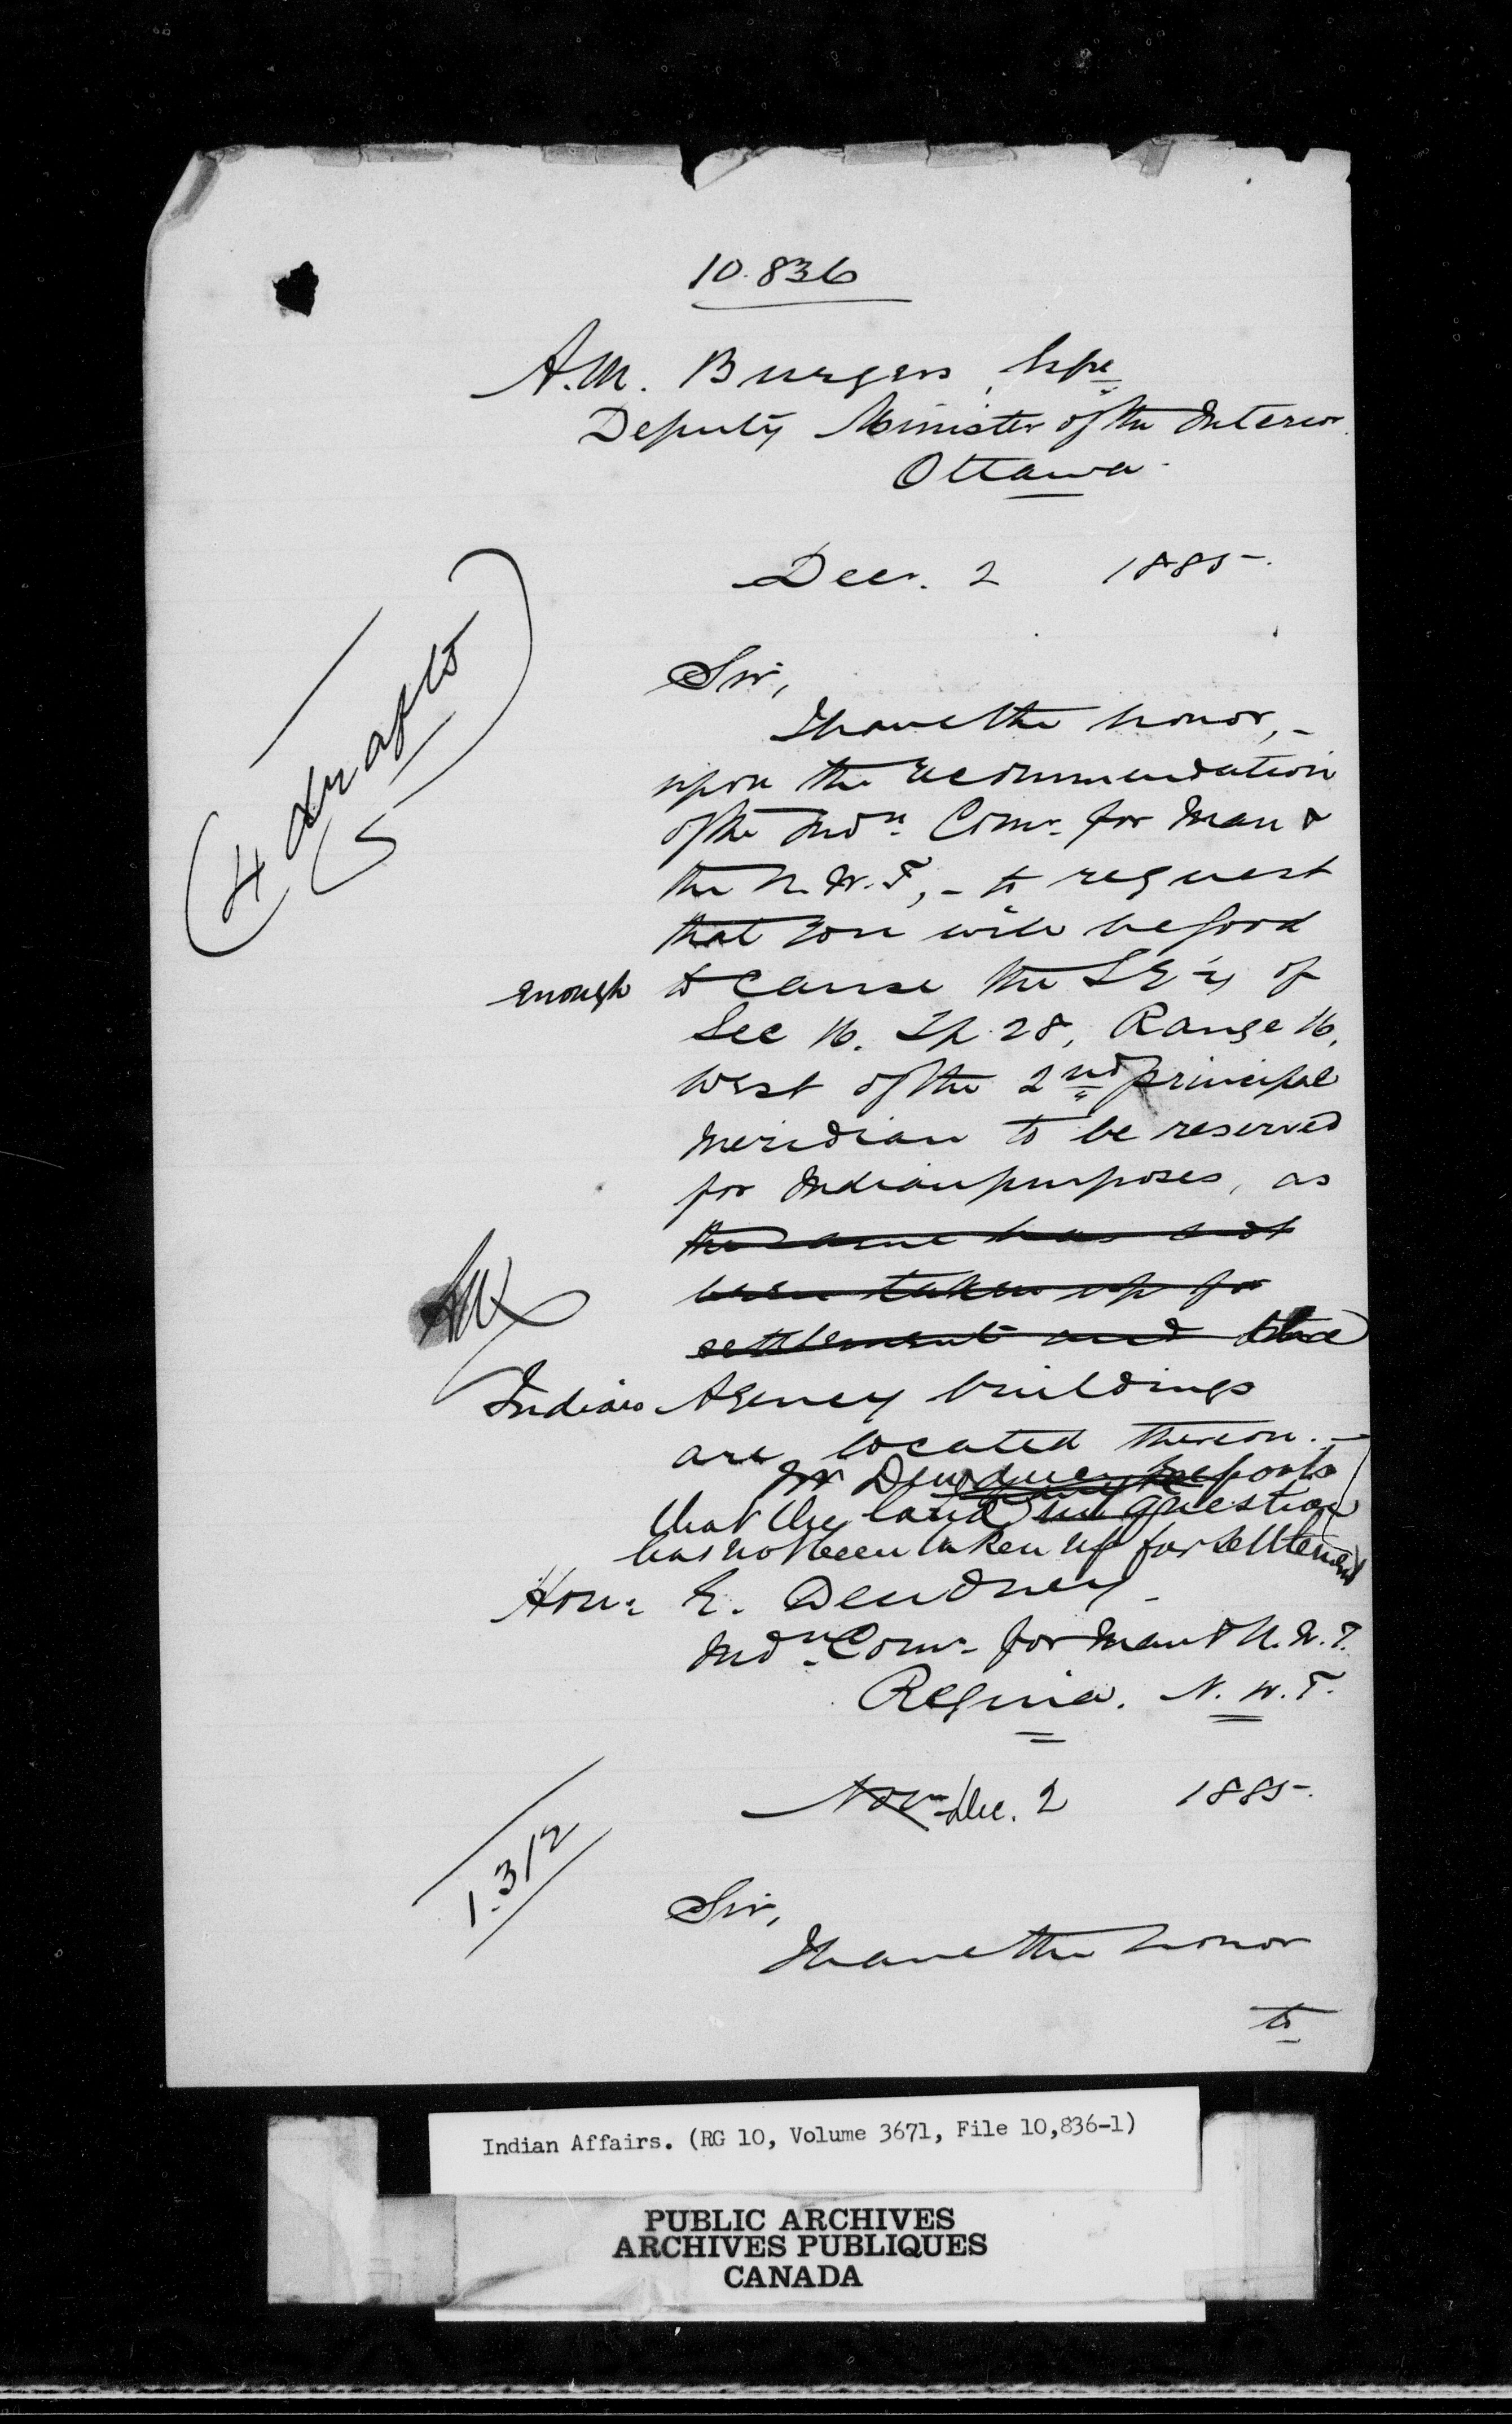 10.836
A.M. Burgess, Esqre
Deputy Minister of the Interior.
Ottawa.
(4 drafts)
Decr. 2 1885.
Sir,
I have the honor, -
upon the recommendation
of the Indn. Comr. for Man &
the N.W.T., - to request
that you will be good
enough to cause the S E ¼ of
Sec 16. Tp. 28, Range 16,
West of the 2nd principal
Meridian to be reserved
for Indian purposes, as
the same has not
been taken up for
settlement and the
Indian Agency buildings
are located thereon. -
Mr Dewdney reports
that the land in question
has not been taken up for settlement
Hon: E. Dewdney
Indn. Comr. for Man & N.W.T.
Regina. N.W.T.
Novr Dec. 2 1885.
1.312
Sir,
I have the honor
to
Indian Affairs. (RG 10, Volume 3671, File 10,836-1)
PUBLIC ARCHIVES
ARCHIVES PUBLIQUES
CANADA